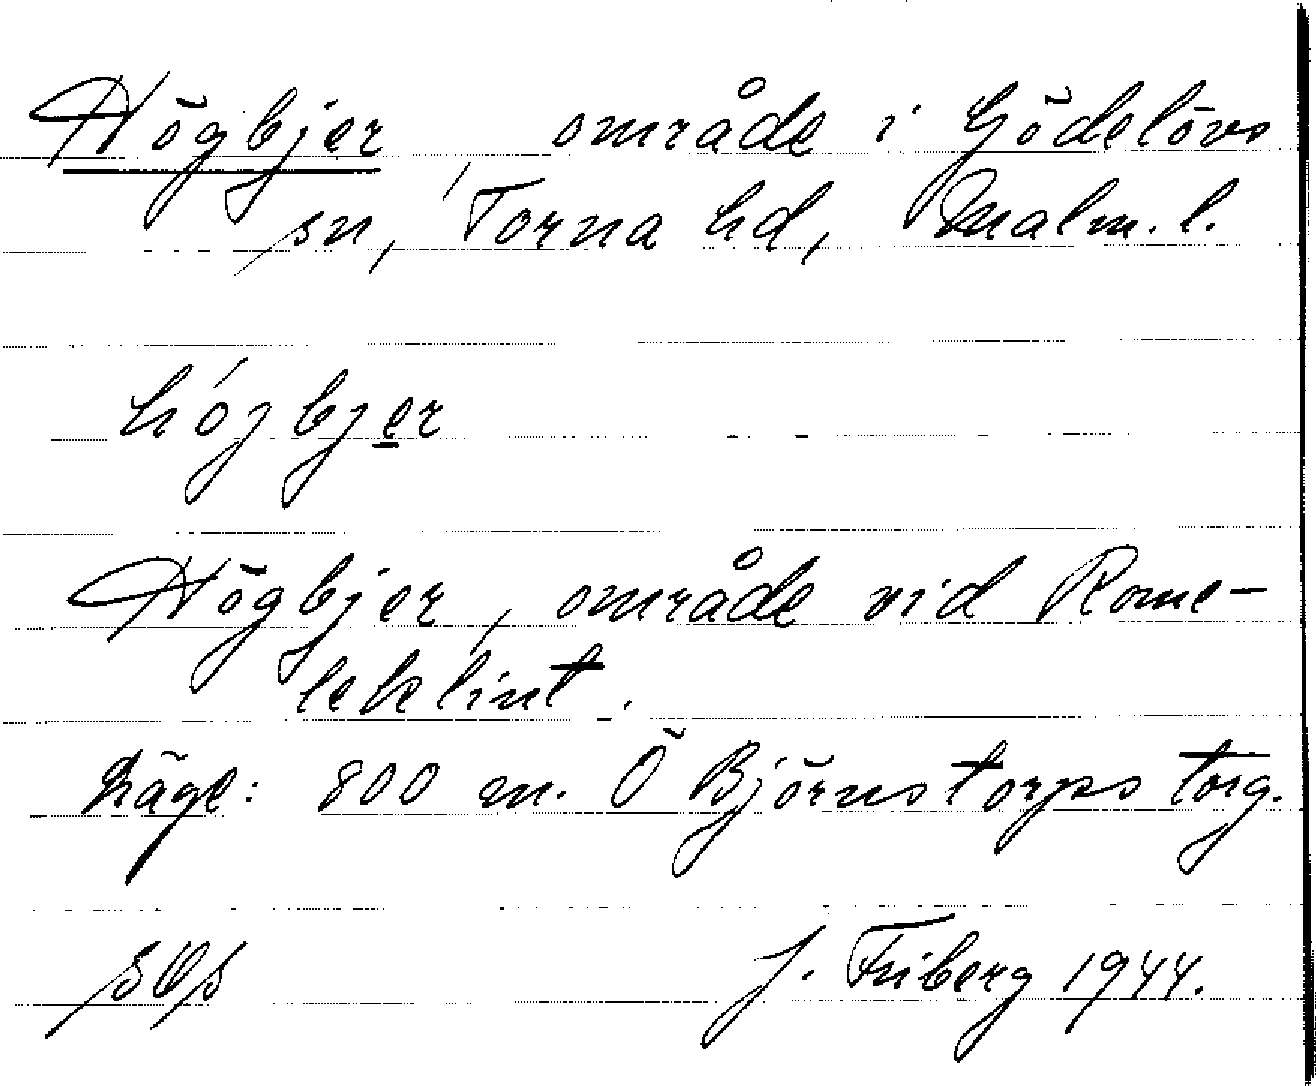 Högbjer område i Gödelövs
sn, Torna hd, Malm. l.
hójbjer
Högbjer, område vid Rome-
leklint.
Läge: 800 m. Ö Björnstorps torg.
J. Friberg 1944.